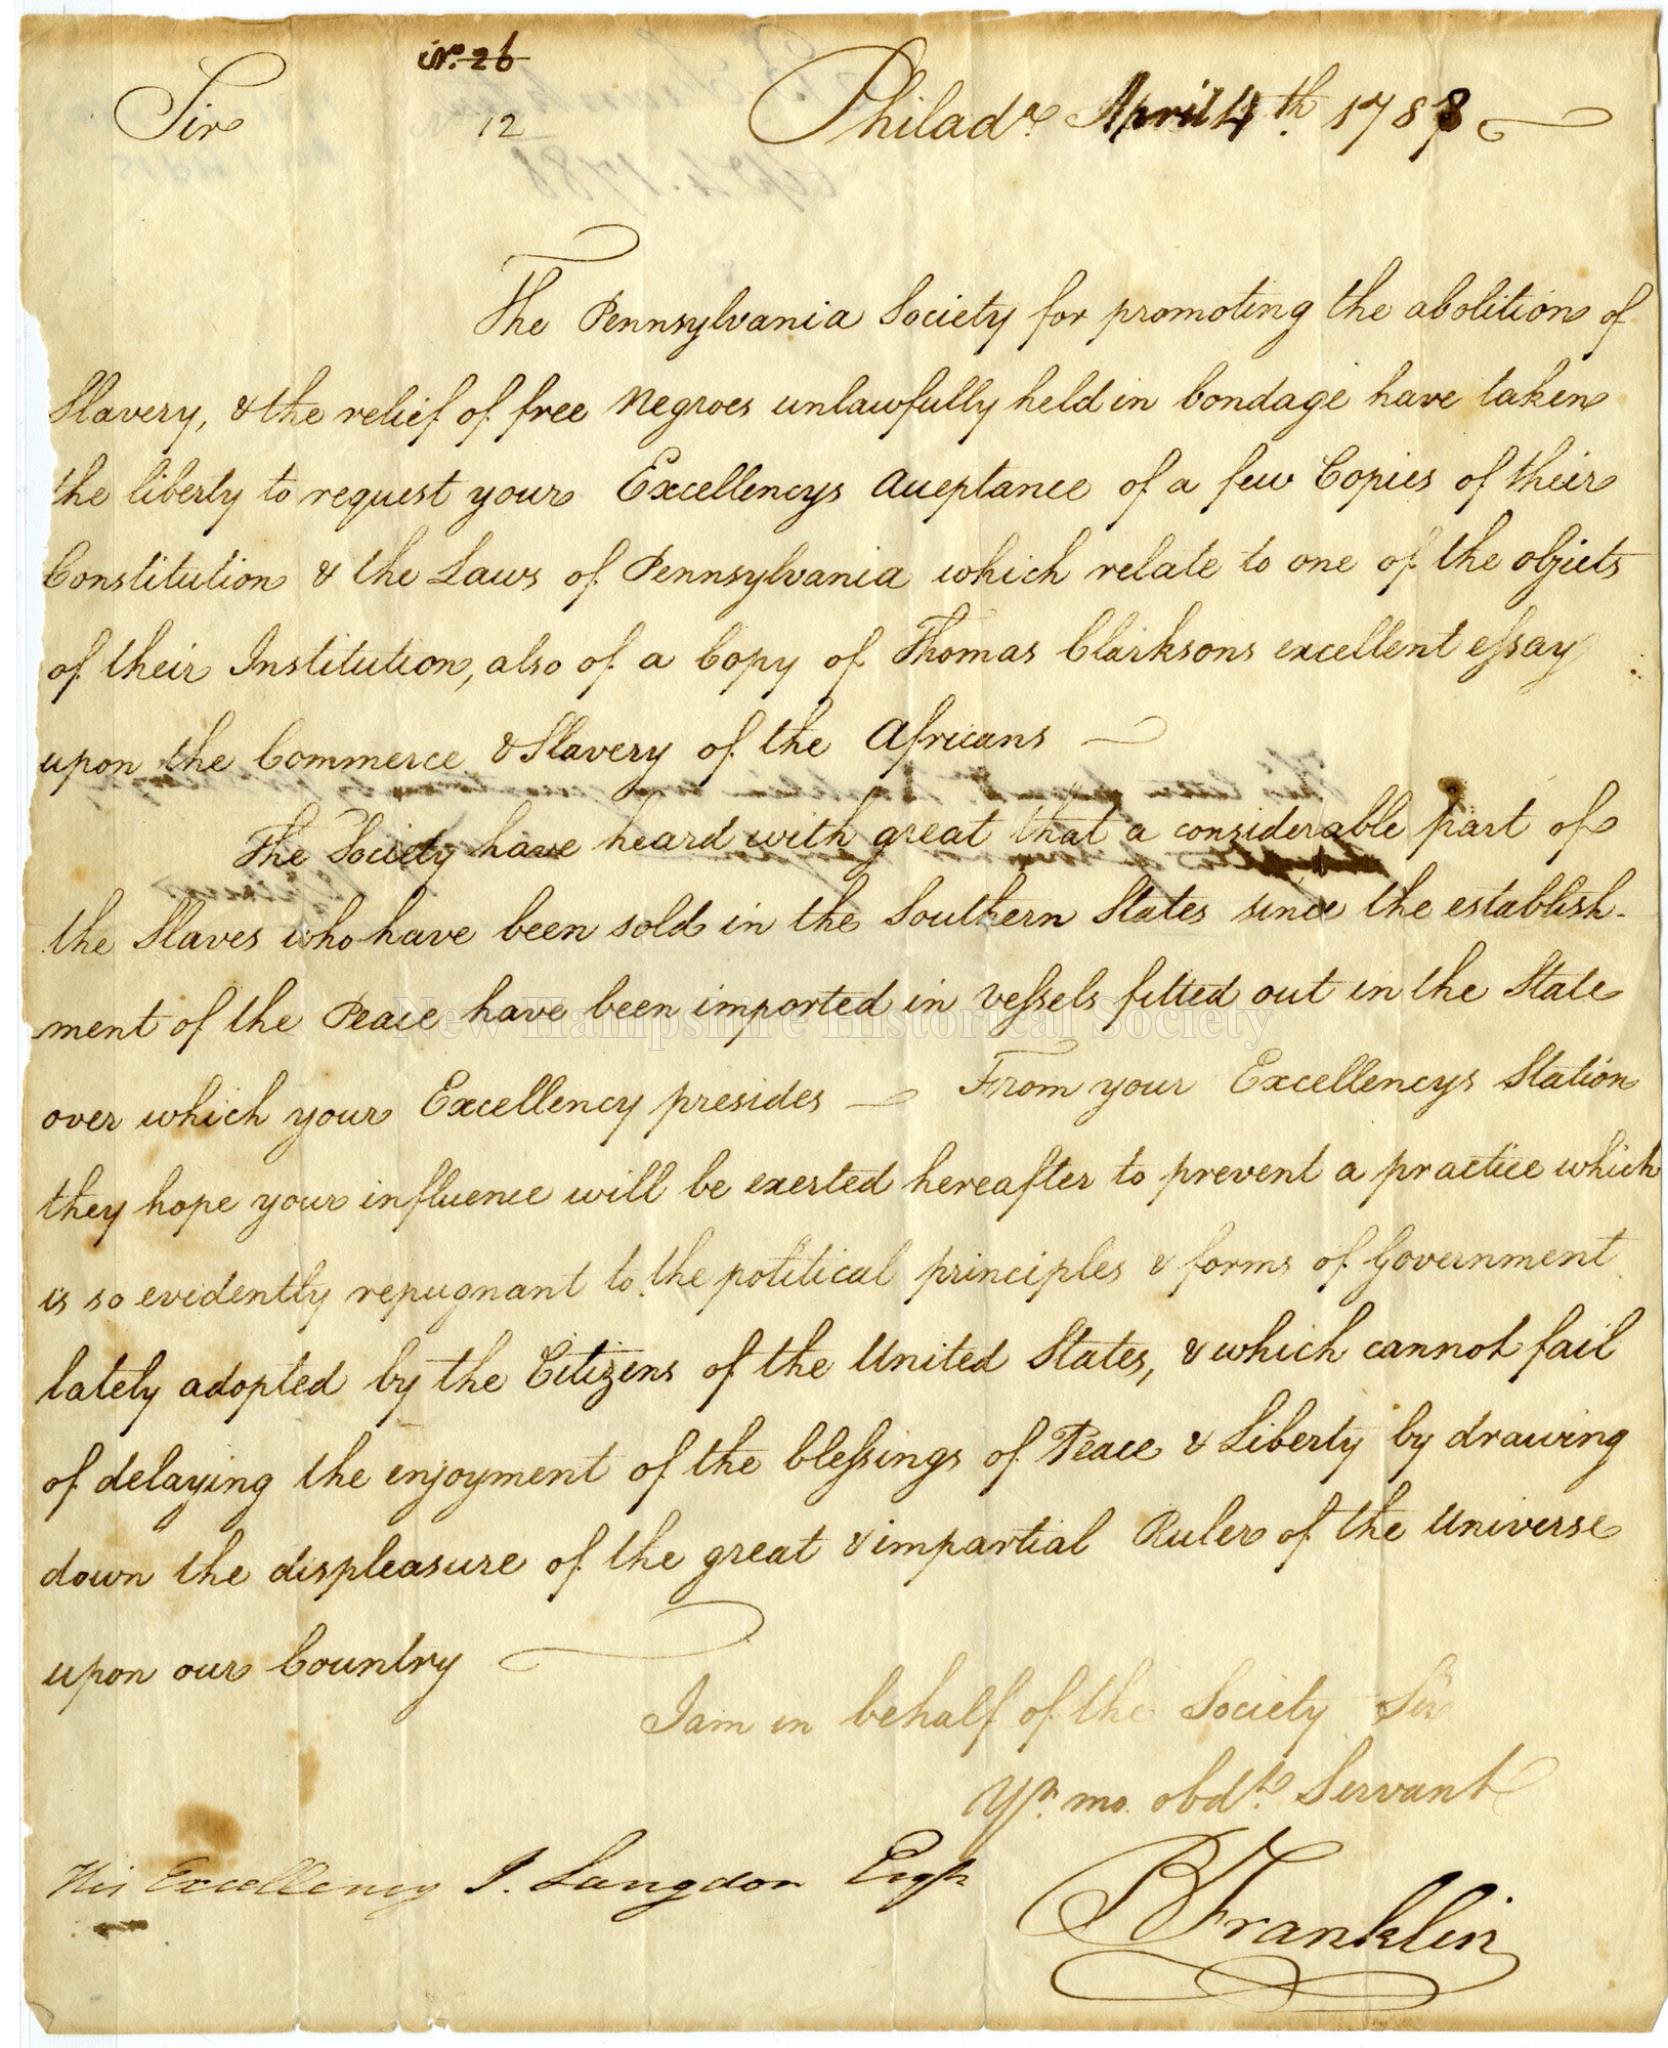 No. 26
Sir 12 Philada. April 4th. 1788
The Pennsylvania Society for promoting the abolition of
Slavery, & the relief of free Negroes unlawfully held in bondage have taken
the liberty to request your Excellencys Acceptance of a few Copies of their
Constitution & the Laws of Pennsylvania which relate to one of the objects
of their Institution, also of a Copy of Thomas Clarksons excellent essay
upon the Commerce & Slavery of the Africans —
The Society have heard with great that a considerable part of
the Slaves who have been sold in the Southern States since the establish-
ment of the Peace have been imported in Vessels fitted out in the State
over which your Excellency presides — From your Excellencys Station
they hope your influence will be exerted hereafter to prevent a practice which
is so evidently repugnant to the political principles & forms of Government
lately adopted by the Citizens of the United States, & which cannot fail
of delaying the enjoyment of the blessings of Peace & Liberty by drawing
down the displeasure of the great & impartial Ruler of the Universe
upon our Country
I am in behalf of the Society Sir
Yr. mo. obdt. Servant
His Excellency J. Langdon Esqr
B Franklin
New Hampshire Historical Society